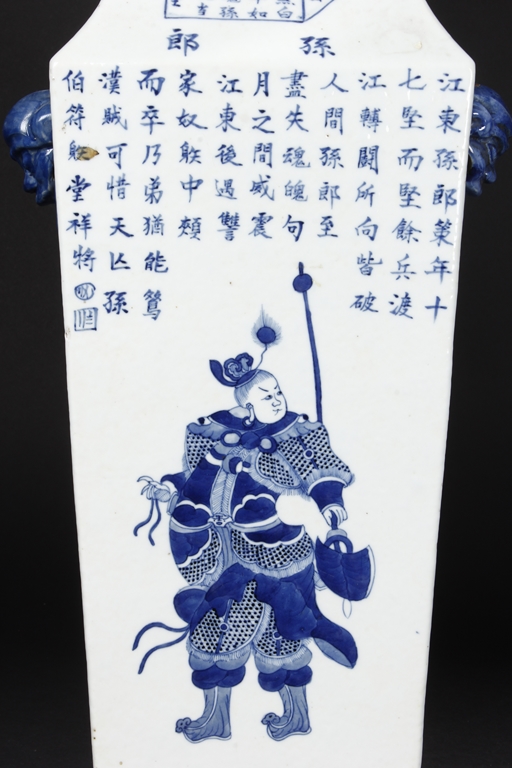 孫郎
江東孫郎策年十
七堅而堅餘兵渡
江轉鬪所向皆破
人間孫郎至
盡失魂魄句
月之間威震
江東後遇讐
家奴躲中頰
而卒乃弟猶能鴛
漢賊可惜天亾孫
伯符躲堂祥將